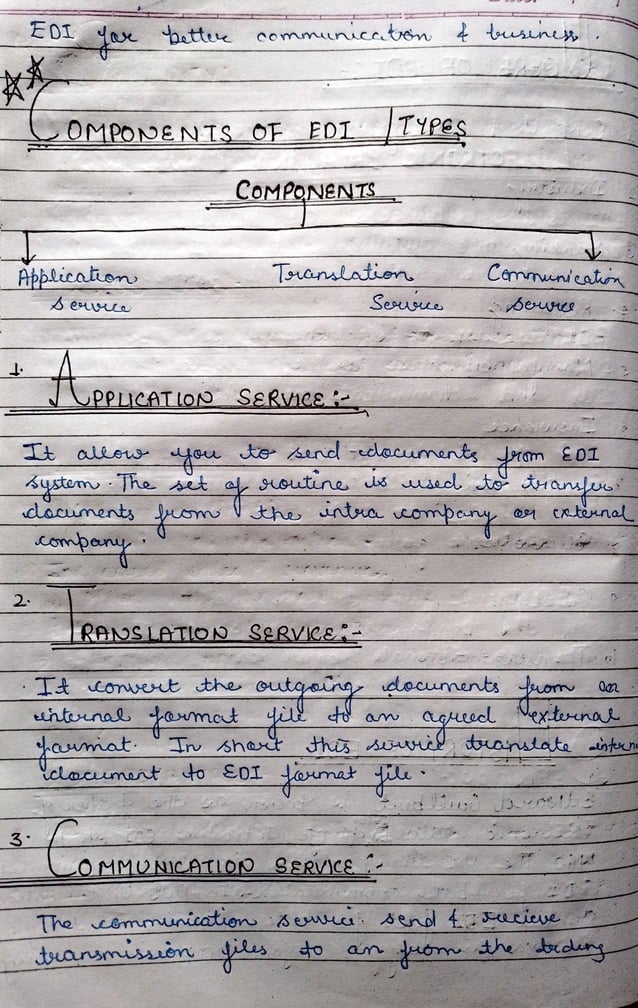 EDI for better communication & business.
COMPONENTS OF EDI / TYPES
COMPONENTS
Application Translation Communication
service Service service
1. APPLICATION SERVICE :-
It allow you to send documents from EDI
system. The set of routine is used to transfer
documents from the intra company or external
company.
2. TRANSLATION SERVICE :-
It convert the outgoing documents from an
internal format file to an agreed external
format. In short this service translate intern
document to EDI format file.
3. COMMUNICATION SERVICE :-
The communication service send & recieve
transmission files to an from the trding